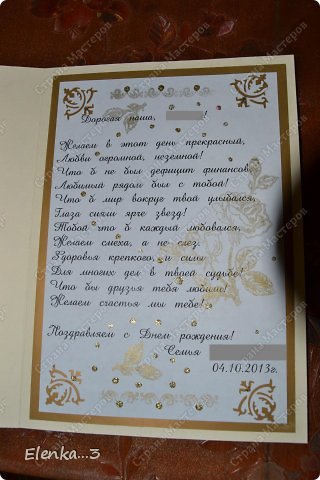 Дорогая наша, !
Желаем в этот день прекрасный,
Любви огромной, неземной!
Что б не был дефицит финансов,
Любимый рядом был с тобой!
Что б мир вокруг твой улыбался,
Глаза сияли ярче звезд!
Тобой что б каждый любовался,
Желаем смеха, а не слез.
Здоровья крепкого, и силы
Для многих дел в твоей судьбе!
Что бы друзья тебя любили!
Желаем счастья мы тебе!
Поздравляем с Днем рождения!
Семья
04.10.2013г.
Elenka...3
Страна Мастеров